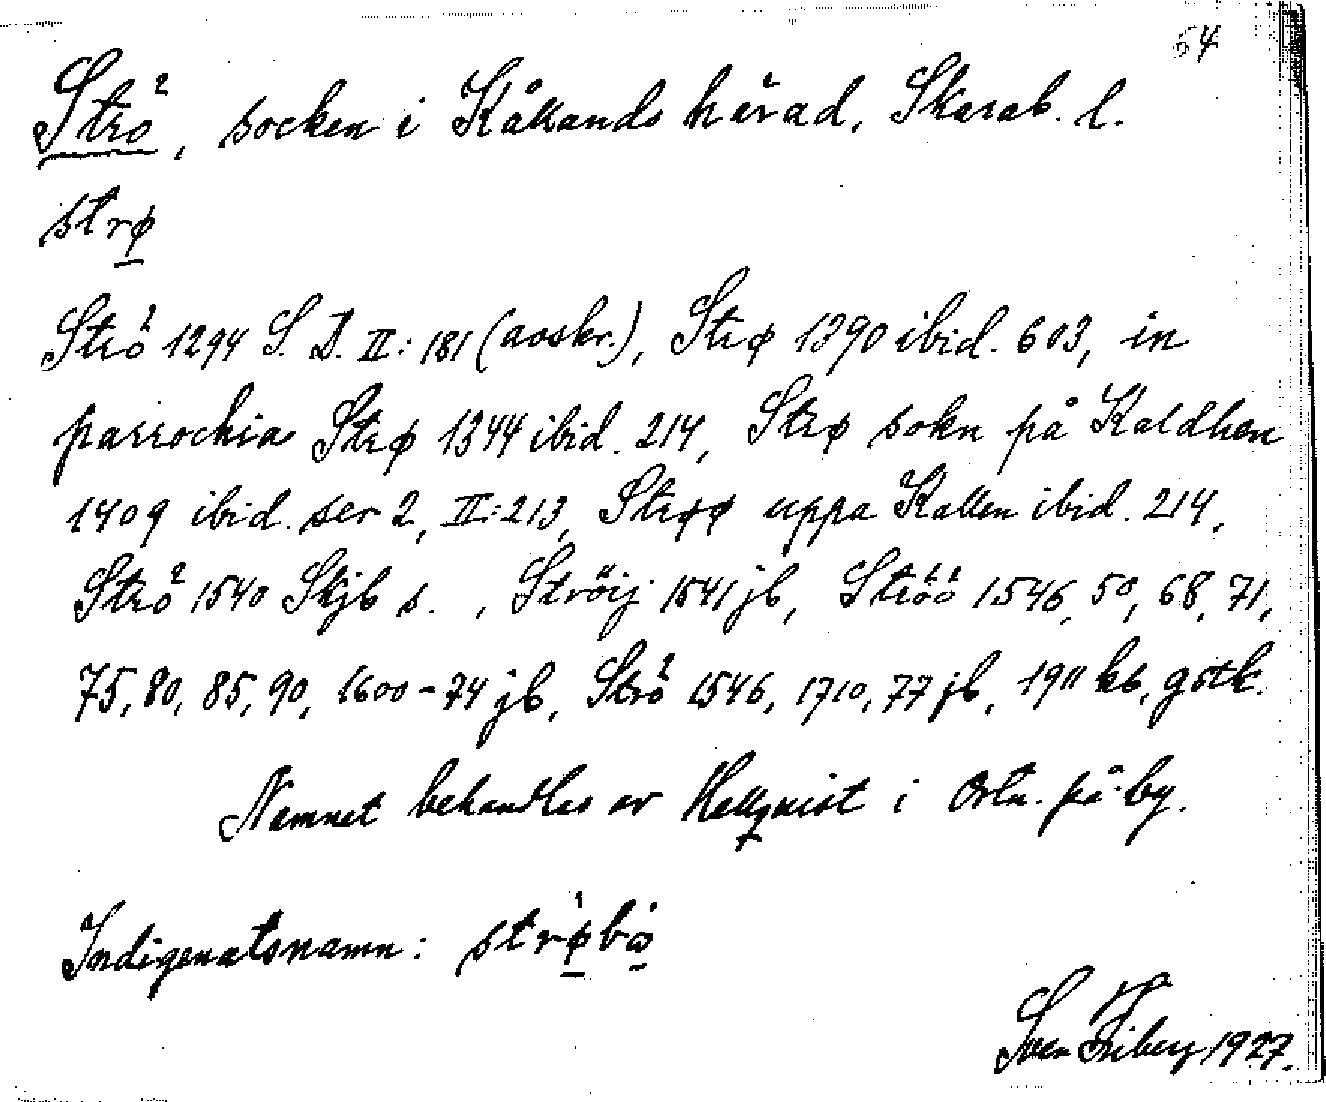 54
Strö, socken i Kållands härad, Skarab. l.
strø
Strö 1294 S. D. II: 181 (avskr.), Strø 1390 ibid. 603, in
parrochia Strø 1344 ibid. 214, Strø sokn på Kaldhen
1409 ibid. ser 2, II: 213, Strøø uppa Kallen ibid. 214,
Strö 1540 Skjb s. , Ströij 1541 jb, Ströö 1546, 50, 68, 71,
75, 80, 85, 90, 1600-74 jb, Strö 1546, 1710, 77 jb, 1911 kb, gstk.
Namnet behandlas av Hellquist i Ortn. på -by.
Indigenatsnamn: strøbo
Sven Friberg 1927.